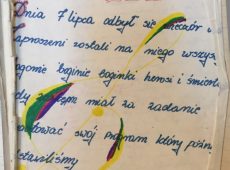 Dnia 7 lipca odbył się wieczór
zaproszeni zostali na niego wszys
boginie boginki herosi i śmiert
miał za zadanie
swój program który późn